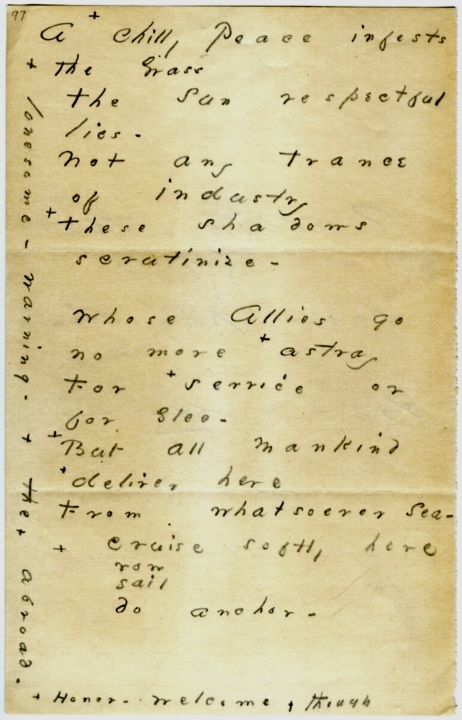 97
A + chill, Peace infests
+ the Grass
The Sun respectful
lies -
Not any Trance
of industry
+ These shadows
scrutinize -
Whose Allies go
no more + astray
For + service or
for Glee -
+ But all mankind
+ deliver here
From whatsoever sea -
+ Cruise softly here
row
sail
do anchor -
+ Honor - welcome + though
lonesome - warning - + the + abroad -